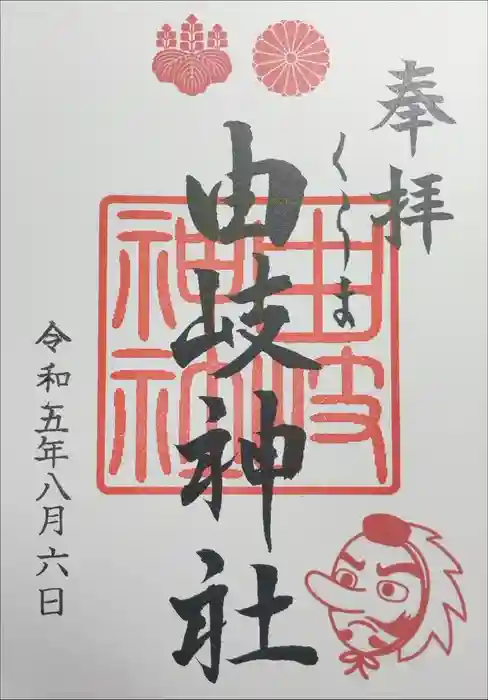 奉拝
くらま
由岐神社
由岐神社
令和五年八月六日